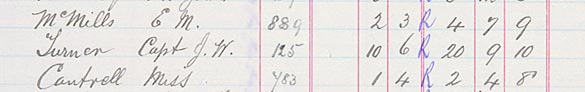 McMills E M. 889 2 3 R 4 7 9
Turner Capt J. W. 125 10 6 R 20 9 10
Cantrell Miss 783 1 4 R 2 4 8